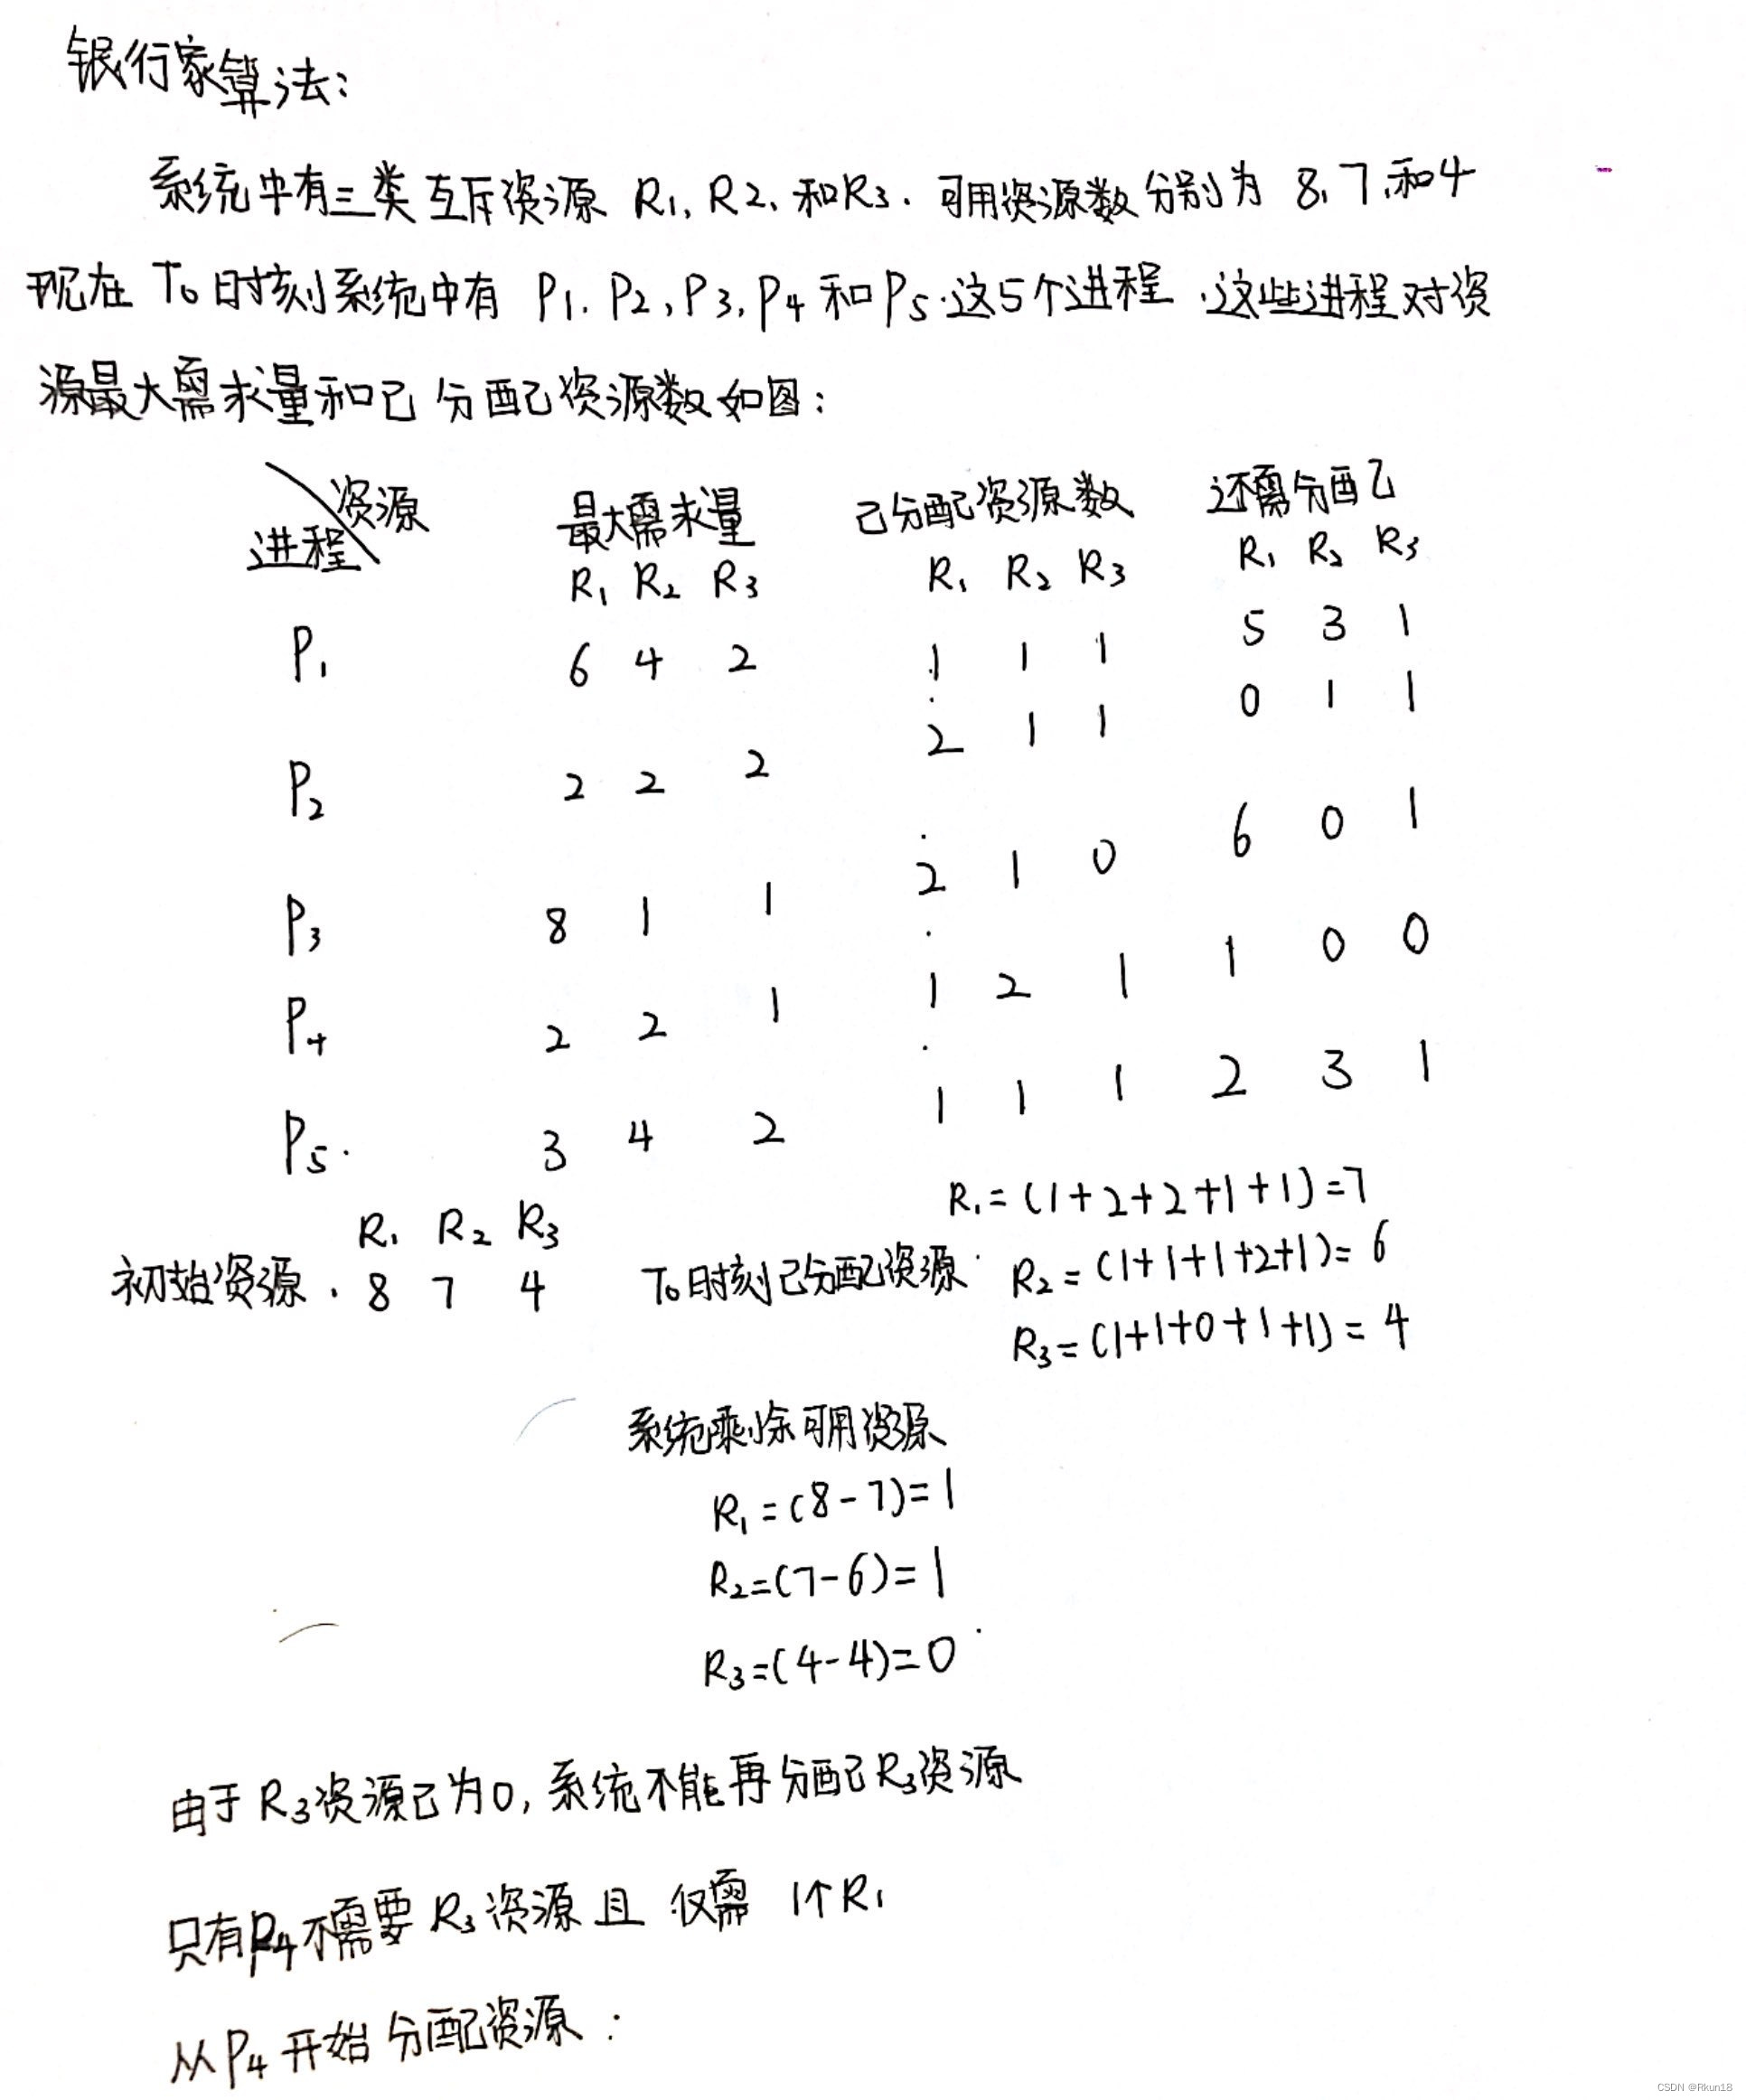 银行家算法:
系统中有三类互斥资源 R1, R2, 和R3. 可用资源数分别为 8, 7 和4
现在 T0 时刻系统中有 P1. P2, P3, P4 和 P5 这5个进程. 这些进程对资
源最大需求量和已分配资源数如图:
资源 最大需求量 已分配资源数 还需分配
进程 R1 R2 R3 R1 R2 R3 R1 R2 R3
P1 6 4 2 1 1 1 5 3 1
P2 2 2 2 2 1 1 0 1 1
P3 8 1 1 2 1 0 6 0 1
P4 2 2 1 1 2 1 1 0 0
P5. 3 4 2 1 1 1 2 3 1
R1 R2 R3 R1=(1+2+2+1+1)=7
初始资源. 8 7 4 T0时刻已分配资源 R2=(1+1+1+2+1)=6
R3=(1+1+0+1+1)=4
系统剩余可用资源
R1=(8-7)=1
R2=(7-6)=1
R3=(4-4)=0
由于R3资源已为0, 系统不能再分配R3资源
只有P4不需要R3资源且 仅需 1个R1
从P4开始分配资源:
CSDN @Rkun18